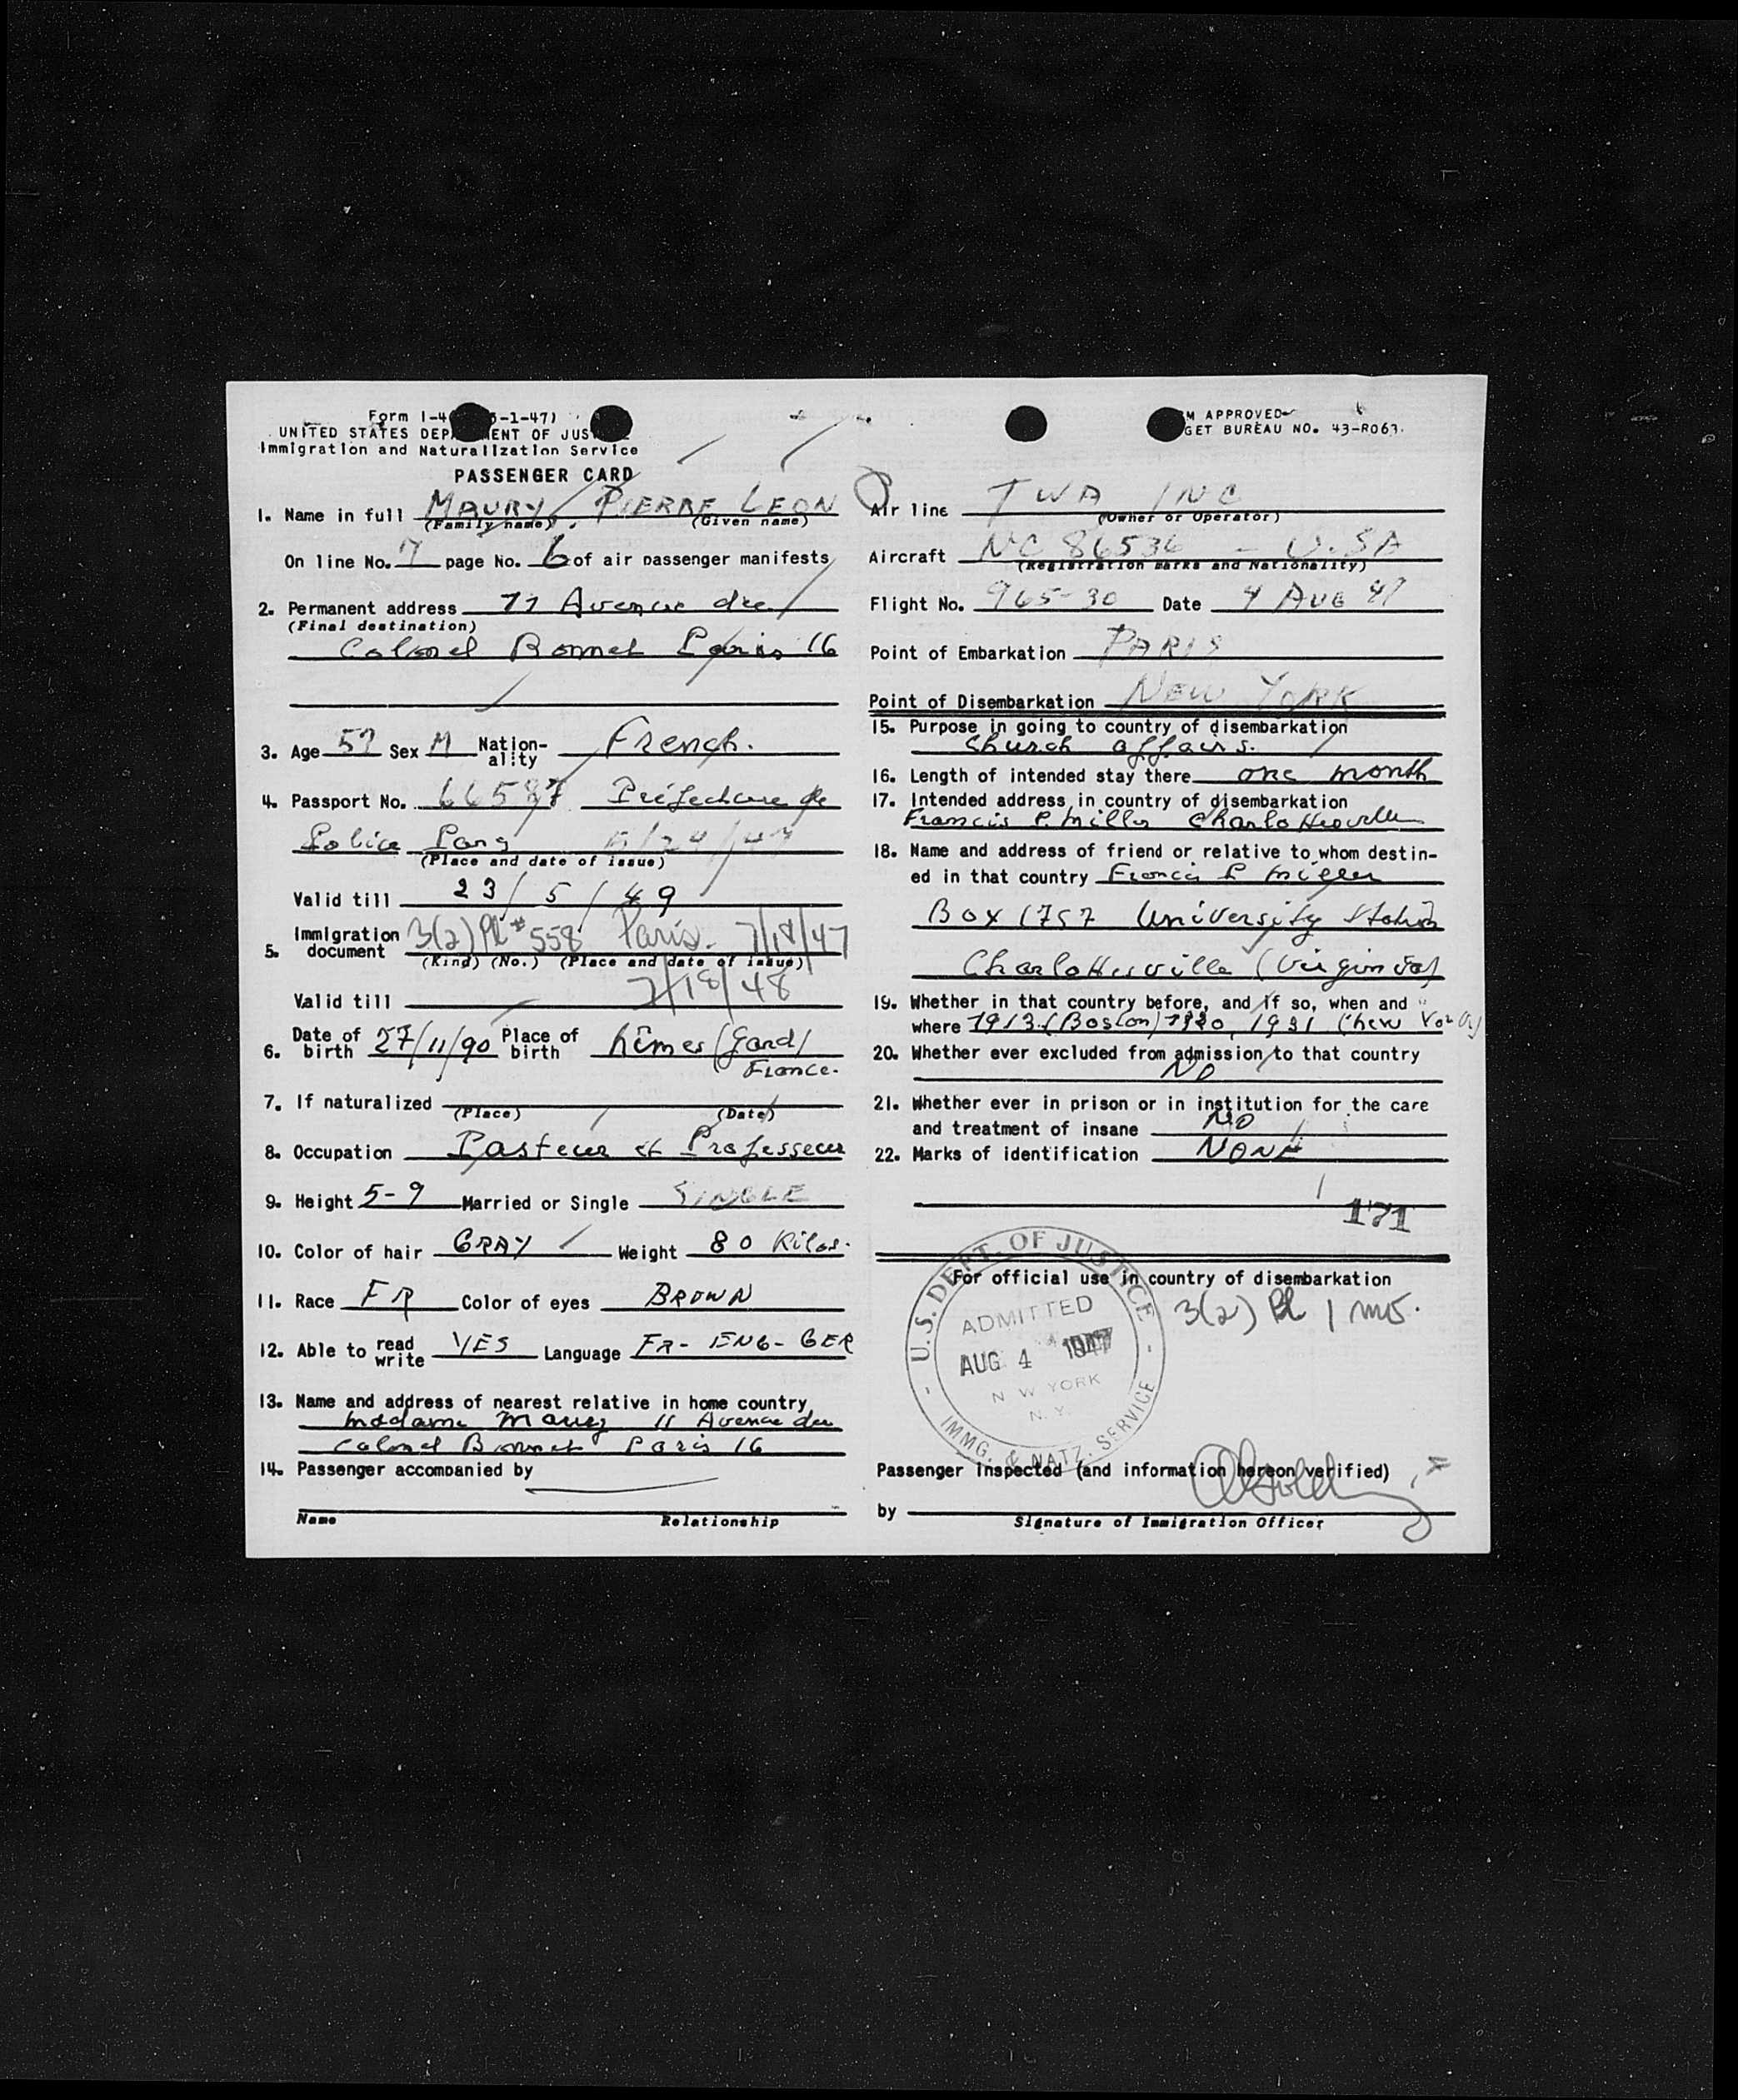 Form I-4 5-1-47)
UNITED STATES DEP ENT OF JUS
Immigration and Naturalization Service
M APPROVED
GET BUREAU NO. 43-R063.
PASSENGER CARD
1. Name in full MAURY PIERRE LEON
(Family name) (Given name)
On line No. 7 page No. 6 of air passenger manifests
2. Permanent address 11 Avenue du
(Final destination)
Colonel Bonnet Paris 16
3. Age 57 Sex M Nation-ality French.
4. Passport No. 66587 Préfecture de
Police Paris 5/24/47
(Place and date of issue)
Valid till 23/5/49
5. Immigration document 3(2) PV # 558 Paris. 7/18/47
(Kind) (No.) (Place and date of issue)
Valid till 7/18/48
6. Date of birth 27/11/90 Place of birth Nimes (Gard)
France.
7. If naturalized
(Place) (Date)
8. Occupation Pasteur et Professeur
9. Height 5-9 Married or Single SINGLE
10. Color of hair GRAY Weight 80 Kilos.
11. Race FR Color of eyes BROWN
12. Able to read write YES Language FR- ENG- GER
13. Name and address of nearest relative in home country
Madame Maury 11 Avenue du
Colonel Bonnet Paris 16
14. Passenger accompanied by
Name Relationship
Air line TWA INC
(Owner or Operator)
Aircraft NC 86536 - U.SA
(Registration marks and Nationality)
Flight No. 965-30 Date 4 AUG 47
Point of Embarkation PARIS
Point of Disembarkation NEW YORK
15. Purpose in going to country of disembarkation
Church affairs.
16. Length of intended stay there one month
17. Intended address in country of disembarkation
Francis P. Miller Charlottesville
18. Name and address of friend or relative to whom destin-
ed in that country Francis P Miller
Box 1757 University Station
Charlottesville (Virginia)
19. Whether in that country before, and if so, when and
where 1913 (Boston) 1920, 1931 (New York)
20. Whether ever excluded from admission to that country
NO
21. Whether ever in prison or in institution for the care
and treatment of insane NO
22. Marks of identification NONE
171
For official use in country of disembarkation
3(2) 1 mo.
U.S. DEPT. OF JUSTICE
ADMITTED
AUG 4 1947
N W YORK
N.Y.
IMMG. & NATZ. SERVICE
Passenger inspected (and information hereon verified)
by
Signature of Immigration Officer